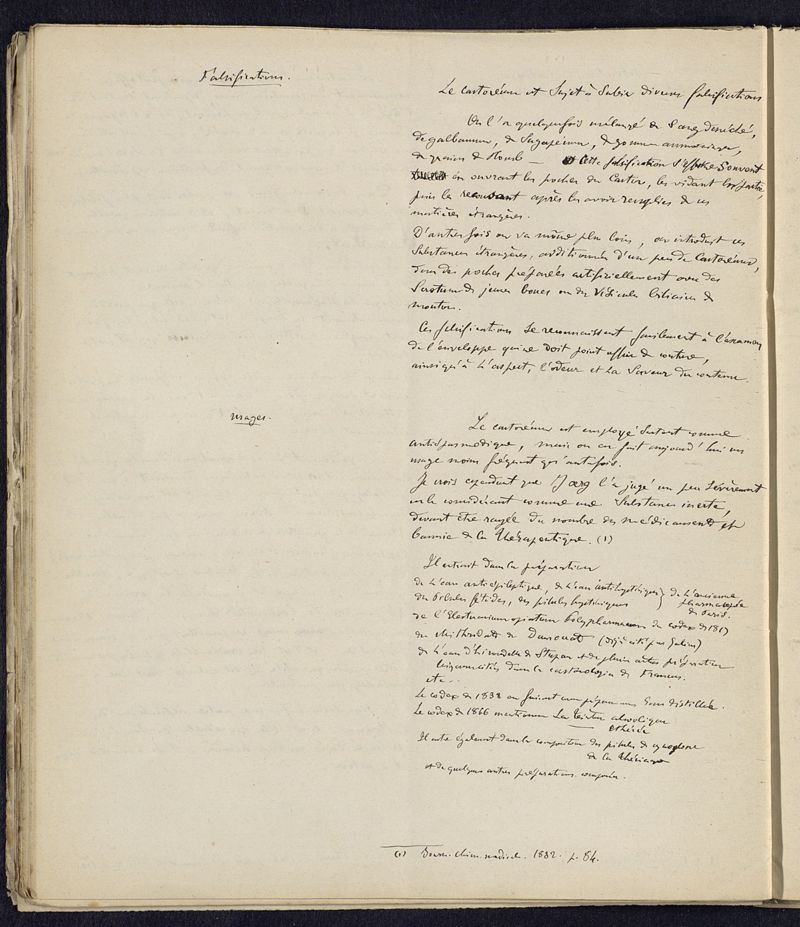 Falsifications.
Le castoréum est sujet à subir diverses falsifications
On l'a quelquefois mélangé de sang desséché,
de galbanum, de sagapenum, de gomme ammoniaque,
de grains de Plomb — et cette falsification s'opère souvent
en ouvrant les poches du Castor, les vidant
puis les recousant après les avoir remplies de ces
matières étrangères.
D'autres fois on va même plus loin, on introduit ces
substances étrangères, additionnées d'un peu de castoréum,
dans des poches préparées artificiellement avec des
Scrotum de jeunes boucs ou des Vésicules biliaires de
mouton.
Ces falsifications se reconnaissent facilement à l'examen
de l'enveloppe qui ne doit point offrir de couture,
ainsi qu'à l'aspect, l'odeur et la saveur du contenu.
usages.
Le castoréum est employé surtout comme
antispasmodique, mais on en fait aujourd'hui un
usage moins fréquent qu'autrefois.
Je crois cependant que Joerg l'a jugé un peu sévèrement
en le considérant comme une substance inerte,
devant être rayée du nombre des médicaments et
bannie de la thérapeutique. (1)
Il entrait dans la préparation
de l'eau antiépileptique, de l'eau antihystérique
des pilules fétides, des pilules hystériques
de l'ancienne
pharmacopée
de Paris.
de l'Electuarium opiatum polypharmacum du codex de 1817
du Mithridate de (déjà cité par Galien)
de l'eau d'hirondelle de et de plusieurs autres préparations
dans la castorologia de Francus.
etc..
Le codex de 1832 en faisait une eau distillée.
Le codex de 1866 mentionne la teinture alcoolique
éthérée
Il entre également dans la composition des pilules de cynoglosse
de la thériaque
et de quelques autres préparations composées.
(1) Journ. chim. médicale. 1832. p. 84.